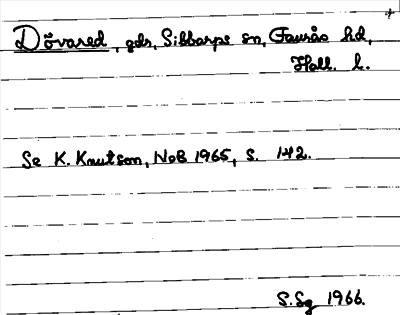 Dövared, gds, Sibbarps sn, Faurås hd,
Hall. l.
Se K. Knutson, NoB 1965, s. 142.
S.Sg 1966.